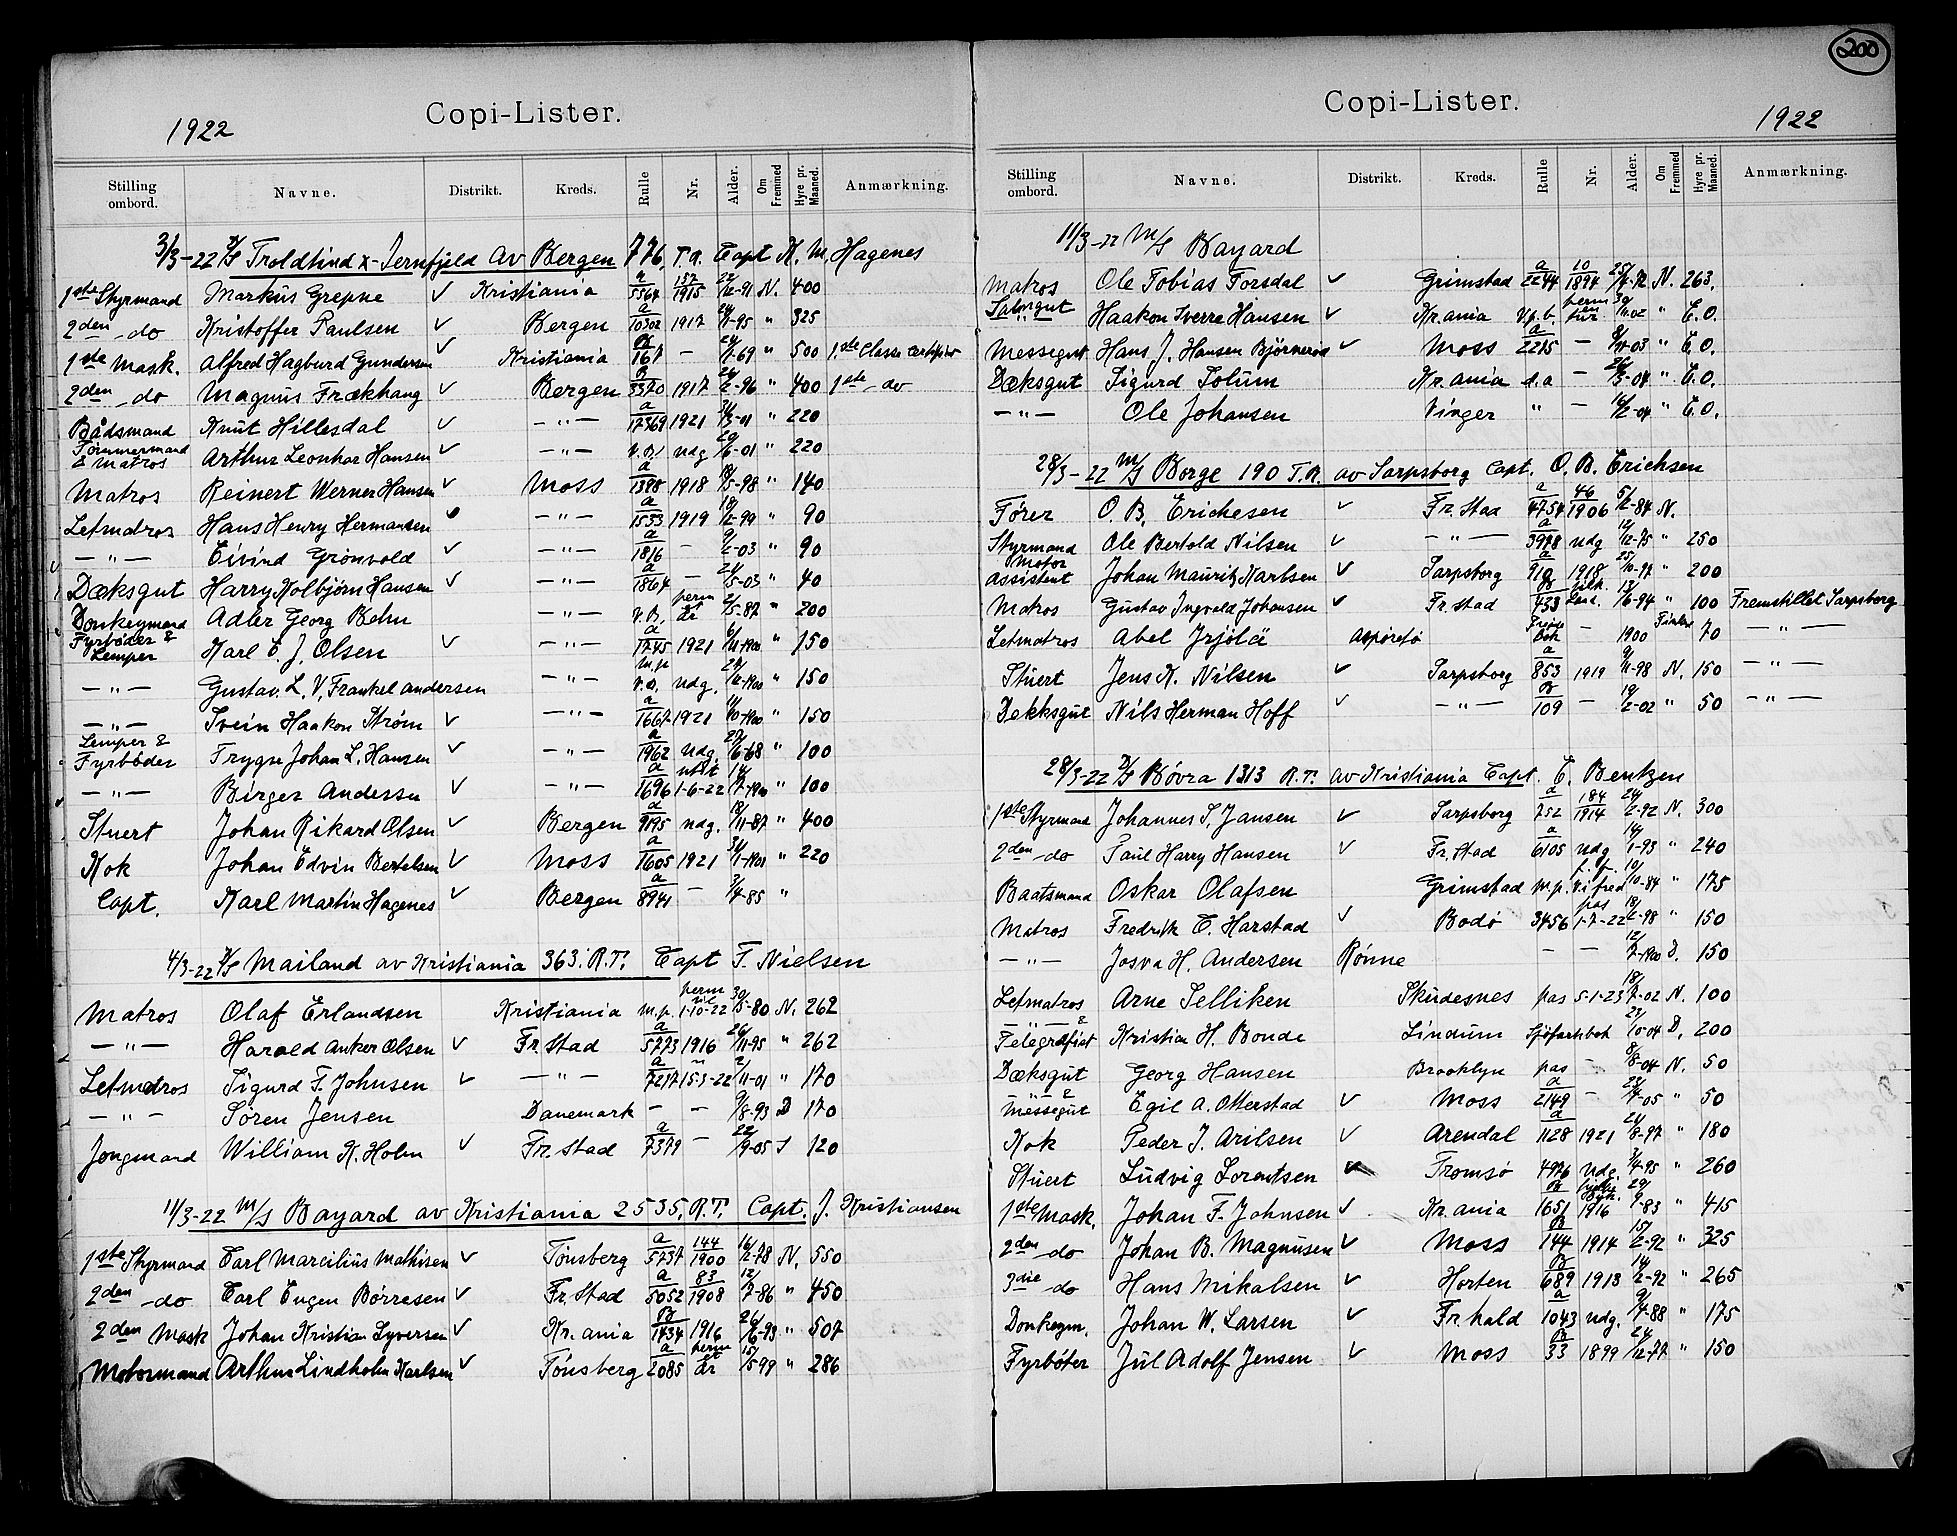 Copi-Lister.
1922
Stilling ombord. Navne. Distrikt. Kreds. Rulle Nr. Alder. Om Fremmed Hyre pr. Maaned. Anmærkning.
3/3-22 D/S Troldtind x-Jernfjeld Av Bergen 776, T.R. Capt K. M. Hagenes
1ste Styrmand Markus Grepne ✓ Kristiania a/5564 157/1915 22/12-91 N. 400
2den do Kristoffer Paulsen ✓ Bergen a/10302 1917 1-95 " 325
1ste Mask. Alfred Hagburd Gundersen ✓ Kristiania B/167 — 24/1-69 " 500 1ste Classe Certifikat
2den do Magnus Frækhaug ✓ Bergen B/3370 1917 24/2-96 " 400 1ste do
Bådsmand Knut Hillesdal ✓ — " — a/17369 1921 3-01 " 220
Tømmermand & Matros Arthur Leonhar Hansen ✓ — " — v.B. udg 29/6-01 " 220
Matros Reinert Werner Hansen ✓ Moss a/1388 1918 18/5-98 " 140
Letmatros Hans Henry Hermansen — " — a/1533 1919 19/12-99 " 90
— " — Eivind Grønvold ✓ — " — a/1816 — 9/2-03 " 90
Dæksgut Harry Kolbjørn Hansen ✓ — " — a/1864 — 24/5-03 " 40
Donkeymand Adler Georg Behn — " — v.B. perm et år 2/5-87 " 200
Fyrbøder & Lemper Karl E. J. Olsen ✓ — " — a/1745 1921 6/11-1900 " 150
— " — Gustav. L. V. Frankel Andersen — " — m.p. v.O. udg. 1900 " 150
— " — Svein Haakon Strøm ✓ — " — a/1667 1921 11/10-1900 " 150
Lemper & Fyrbøder Trygve Johan L. Hansen ✓ — " — a/1962 udg. 6-68 " 100
— " — Birger Andersen ✓ — " — a/1696 udst 1-6-22 14/7-1900 " 100
Stuert Johan Rikard Olsen ✓ Bergen a/9195 udg. 18/11-87 " 400
Kok Johan Edvin Bertelsen ✓ Moss a/1605 1921 31/1-1901 " 220
Capt. Karl Martin Hagenes ✓ Bergen a/8941 — 3/4-85 "
4/3-22 D/S Mailand av Kristiania 363. R.T. Capt T. Nielsen
Matros Olaf Erlandsen Kristiania m.p. perm til 1-10-22 30/5-80 N. 262
— " — Harald Anker Olsen ✓ Fr.stad a/5773 1916 26/11-95 " 262
Letmatros Sigurd F. Johnsen ✓ — " — a/7217 15-3-22 2/11-01 " 170
— " — Søren Jensen Danemark — — 9/8-93 D 170
Jongmand William K. Holm ✓ Fr.stad a/7379 — 22/9-05 120
11/3-22 M/S Bayard av Kristiania 2535. R.T. Capt. J. Kristiansen
1ste Styrmand Carl Marcilius Mathisen ✓ Tønsberg a/5737 144/1900 16/12-78 N. 550
2den do Carl Eugen Børresen ✓ Fr.stad a/5052 83/1908 12/7-86 " 450
2den Mask Johan Kristian Syversen ✓ Kr.ania B/1434 1916 26/6-93 " 507
Motormand Arthur Lindholm Karlsen ✓ Tønsberg a/2085 perm et år 15/5-99 " 286
200
Copi-Lister.
1922
Stilling ombord. Navne. Distrikt. Kreds. Rulle Nr. Alder. Om Fremmed Hyre pr. Maaned. Anmærkning.
11/3-22 M/S Bayard
Matros Ole Tobias Forsdal ✓ Grimstad a/2244 10/1894 N. 263.
Salongut Haakon Sverre Hansen ✓ Kr.ania v.p.b. perm en tur 30/11-02 " E.O.
Messegut Hans J. Hansen Bjørnerød ✓ Moss a/2215 — 8/11-03 " E.O.
Dæksgut Sigurd Solum Kr.ania s.a — 26/3-04 " E.O.
— " — Ole Johansen Vinger " — 16/12-04 " E.O.
28/3-22 M/S Borge 190 T.R. av Sarpsborg Capt. O. B. Erichsen
Fører O. B. Erichesen ✓ Fr.stad a/4754 46/1906 5/12-84 N.
Styrmand Ole Bertold Nilsen ✓ — " — a/3978 udg 19/12-75 " 250
Motor assistent Johan Mauritz Karlsen ✓ Sarpsborg a/910 1918 25/10-97 " 200
Matros Gustav Ingvald Johansen ✓ Fr.stad B/433 13/6-94 " 100 Fremstillet Sarpsborg
Letmatros Abel Jrjölä — 1900 70 — " —
Stuert Jens K. Nilsen ✓ Sarpsborg a/853 1919 9/11-98 N. 150 — " —
Dekksgut Nils Herman Hoff ✓ — " — B/109 — 19/2-02 " 50 — " —
28/3-22 D/S Bøvra 1313 R.T. av Kristiania Capt. E. Bentzen
1ste Styrmand Johannes S. Jansen ✓ Sarpsborg a/752 184/1914 24/2-92 N. 300
2den do Paul Harry Hansen ✓ Fr.stad a/6105 udg 14/1-93 " 240
Baatsmand Oskar Olafsen Grimstad m.p. 10/10-84 " 175
Matros Fredrik C. Harstad ✓ Bodø 3456 pas 1-7-22 18/2-98 " 150
— " — Josva H. Andersen Rønne — — 12/7-1900 D. 150
Letmatros Arne Selliken Skudesnes pas 5-1-23 18/7-02 N. 100
— " — & Telegrafist Kristian H. Bonde Lindum Sjøfartsbok 10-04 D. 200
Dæksgut Georg Hansen Brooklyn pas — 8/8-04 N. 50
— " — & Messegut Egil A. Otterstad ✓ Moss a/2149 — 05 " 50
Kok Peder J. Arilsen ✓ Arendal a/1128 1921 24/8-97 " 180
Stuert Ludvig Lorentsen ✓ Tromsø 4976 udg 3/4-95 " 260
1ste Mask. Johan F. Johnsen ✓ Kr.ania B/1651 1916 29/9-83 " 415
2den do Johan B. Magnusen ✓ Moss B/144 1914 15/2-92 " 325
3die do Hans Mikalsen ✓ Horten B/689 1913 14/2-92 " 265
Donkeym. Johan W. Larsen ✓ Fr.hald a/1043 udg. 9/4-88 " 175
Fyrbøter Jul Adolf Jensen ✓ Moss B/33 1899 24/12-77 " 150